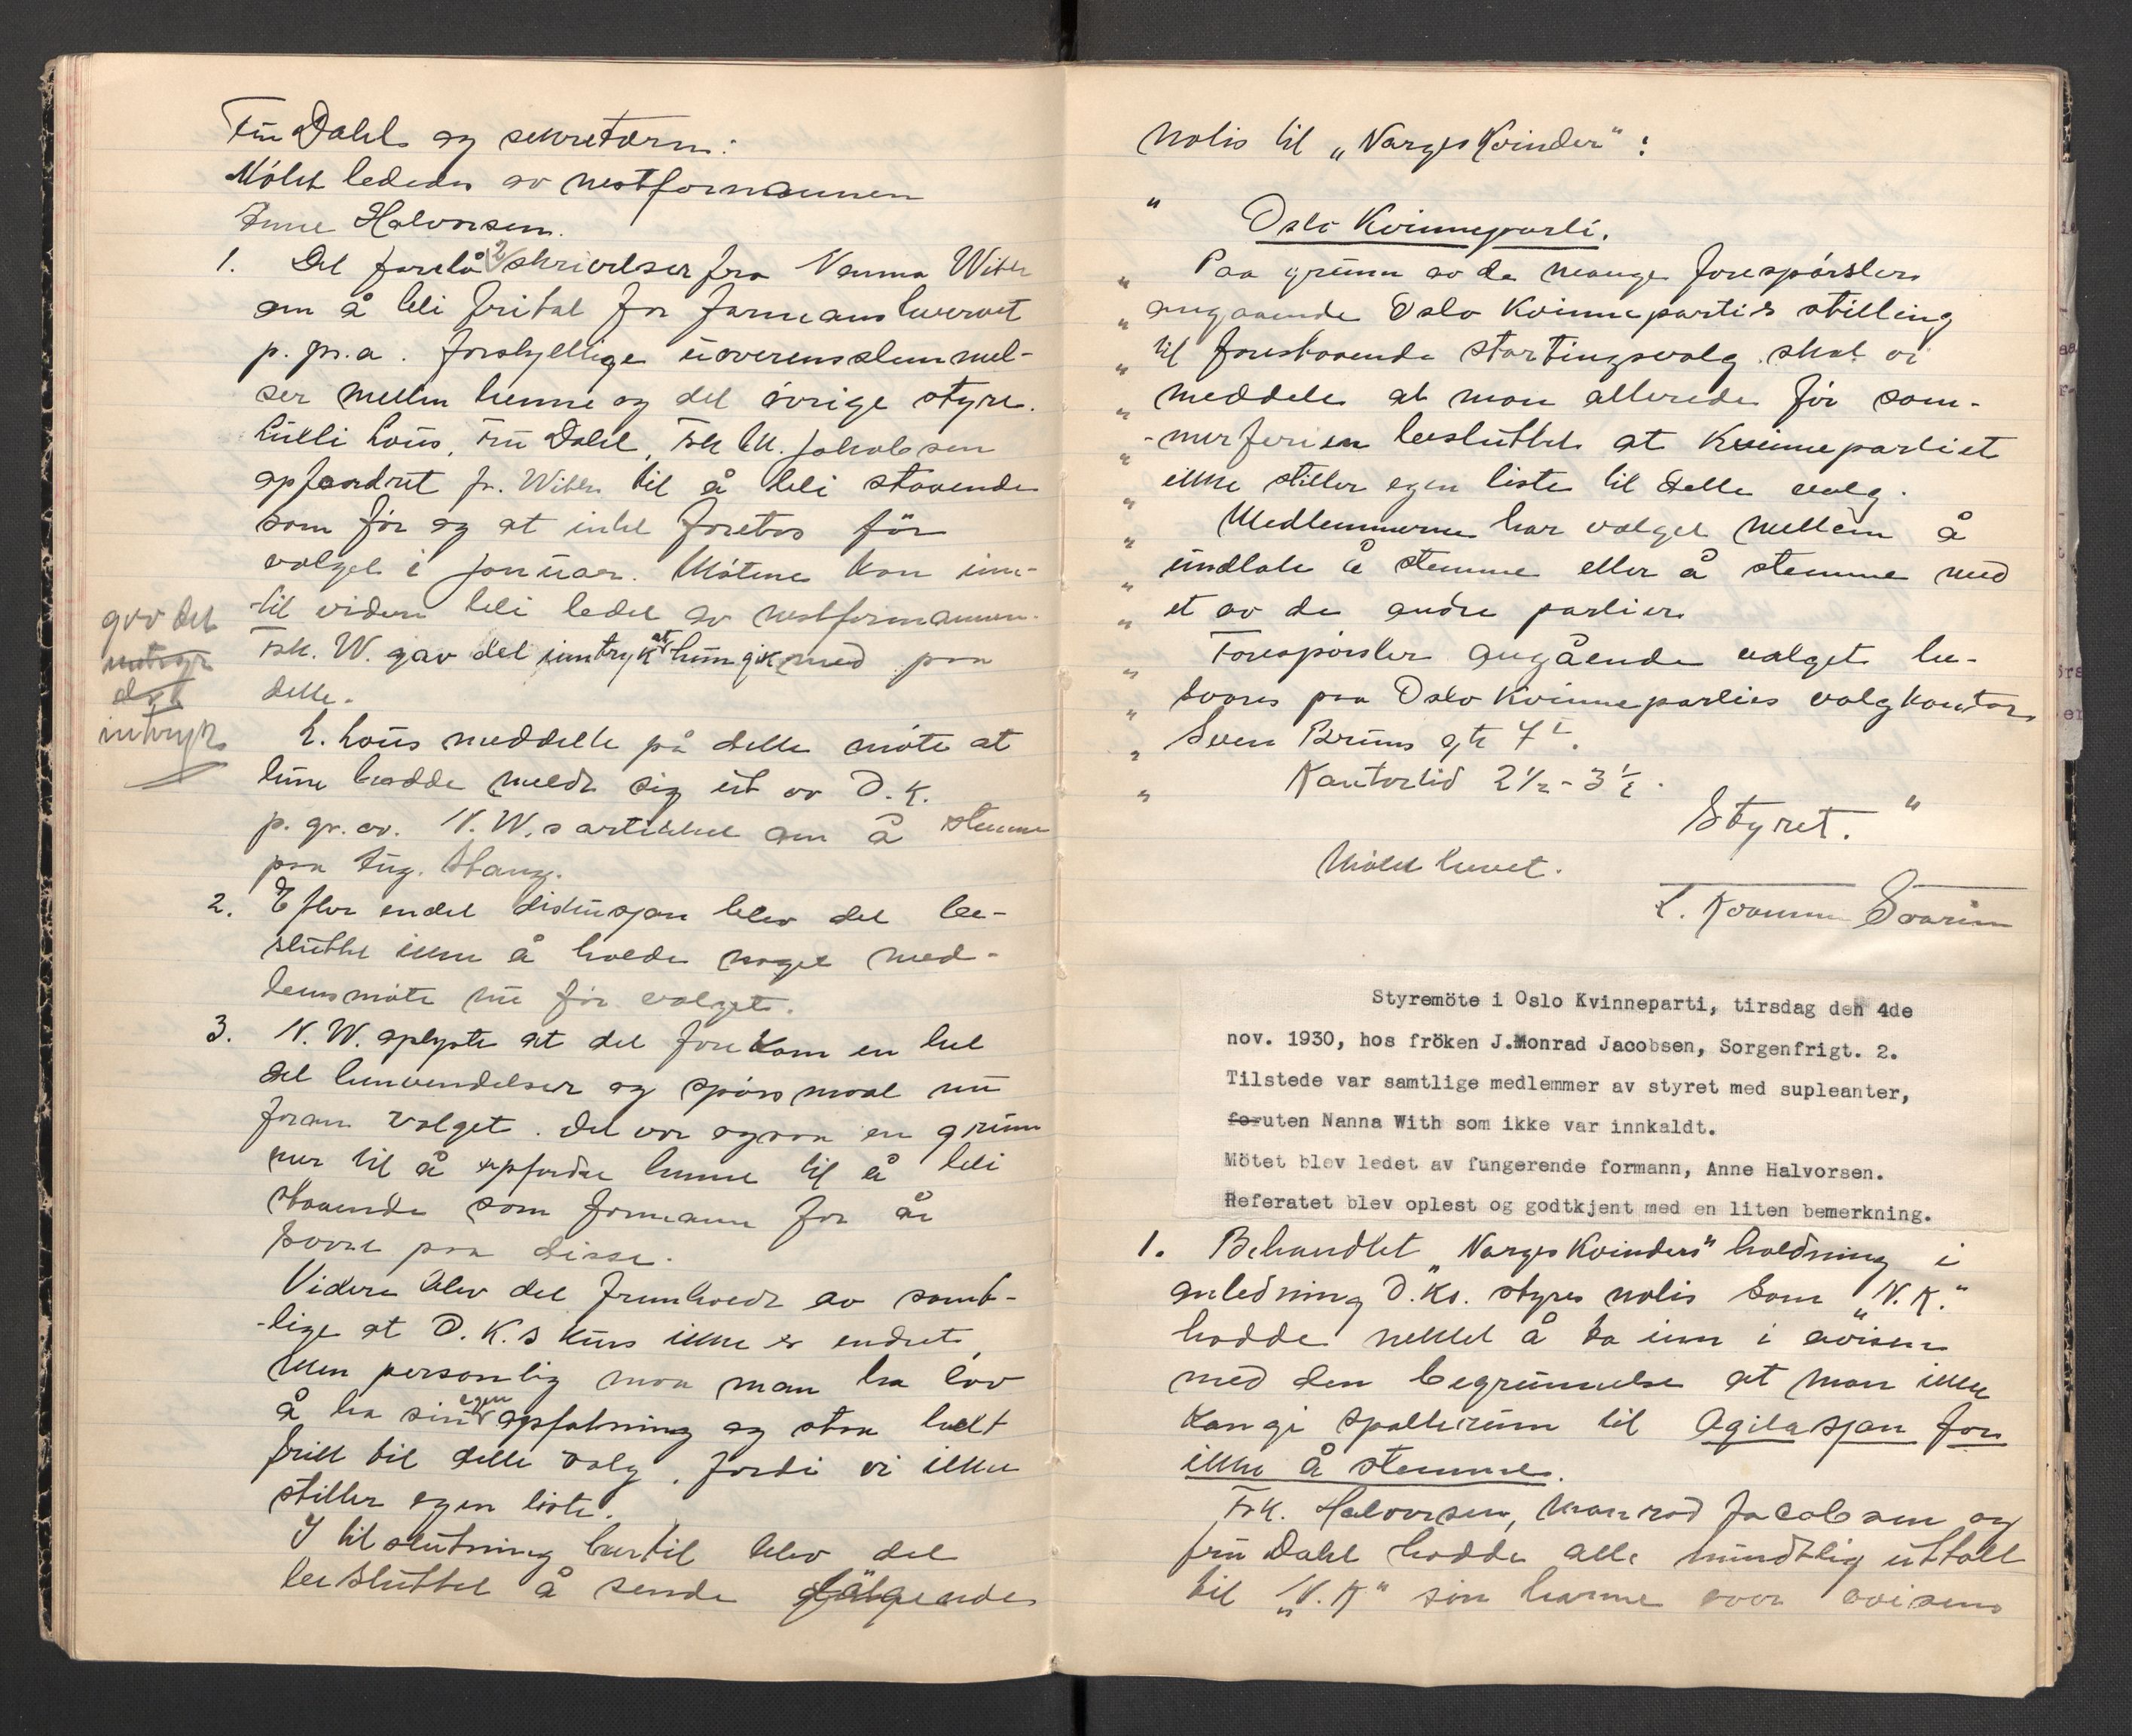 Fru Dahl og sekretæren.
Mötet lededes av nestformannen
Anne Halvorsen.
1. Det forelå 2 skrivelser fra Nanna With
om å bli fritat for formanshvervet
p. gr. a. forskjellige uoverensstemmel-
ser mellem henne og det övrige styre.
Lulli Lous, Fru Dahl, Frk M. Jakobsen
opfordret fr. With til å bli staaende
som för og at intet foretas för
valget i januar. Mötene kan inn-
til videre bli ledet av nestformannen.
Frk. W. gav det inntryk at hun gik med paa
dette.
gav det
inntryk
det
intryk
L. Lous meddelte på dette möte at
hun hadde meldt sig ut av O.K.
p. gr. av. N.W.s artikkel om å stemme
paa Fug. Stang.
2. Efter endel diskusjon blev det be-
sluttet ikke å holde noget med-
lemsmöte nu för valget.
3. N.W. oplyste at det forekom en hel
del henvendelser og spörsmaal nu
foran valget. Det var ogsaa en grunn
mer til å opfordre henne til å bli
staaende som formann for å
svare paa disse.
Videre blev det fremhævet av samt-
lige at O.K.s kurs ikke er endret,
men personlig maa man ha lov
å ha sin egen opfatning og staa helt
fritt til dette valg, fordi vi ikke
stiller egen liste.
I tilslutning hertil blev det
besluttet å sende fölgende
notis til „Norges Kvinder“:
" Oslo Kvinneparti.
" Paa grunn av de mange forespörsler
" angaaende Oslo Kvinnepartis stilling
" til forestaaende stortingsvalg skal vi
" meddele at man allerede för som-
" -merferien besluttet at Kvinnepartiet
" ikke stiller egen liste til dette valg.
" Medlemmerne har valget mellem å
" undlate å stemme eller å stemme med
" et av de andre partier.
" Forespörsler angående valget be-
" svares paa Oslo Kvinnepartis valgkontor,
" Sven Bruns gt 7 I.
" Kontortid 2 1/2 - 3 1/2.
Styret. "
Mötet hevet.
L. Kvamme Svarin
Styremöte i Oslo Kvinneparti, tirsdag den 4de
nov. 1930, hos fröken J.Monrad Jacobsen, Sorgenfrigt. 2.
Tilstede var samtlige medlemmer av styret med supleanter,
foruten Nanna With som ikke var innkaldt.
Mötet blev ledet av fungerende formann, Anne Halvorsen.
Referatet blev oplest og godtkjent med en liten bemerkning.
1. Behandlet „Norges Kvinders“ holdning i
anledning O.Ks. styres notis som „N.K.“
hadde nektet å ta inn i avisen
med den begrunnelse at man ikke
kan gi spalterum til Agitasjon for
ikke å stemme.
Frk. Halvorsen, Monrad Jacobsen og
fru Dahl hadde alle mundtlig uttalt
til „N.K“ sin harme over avisens